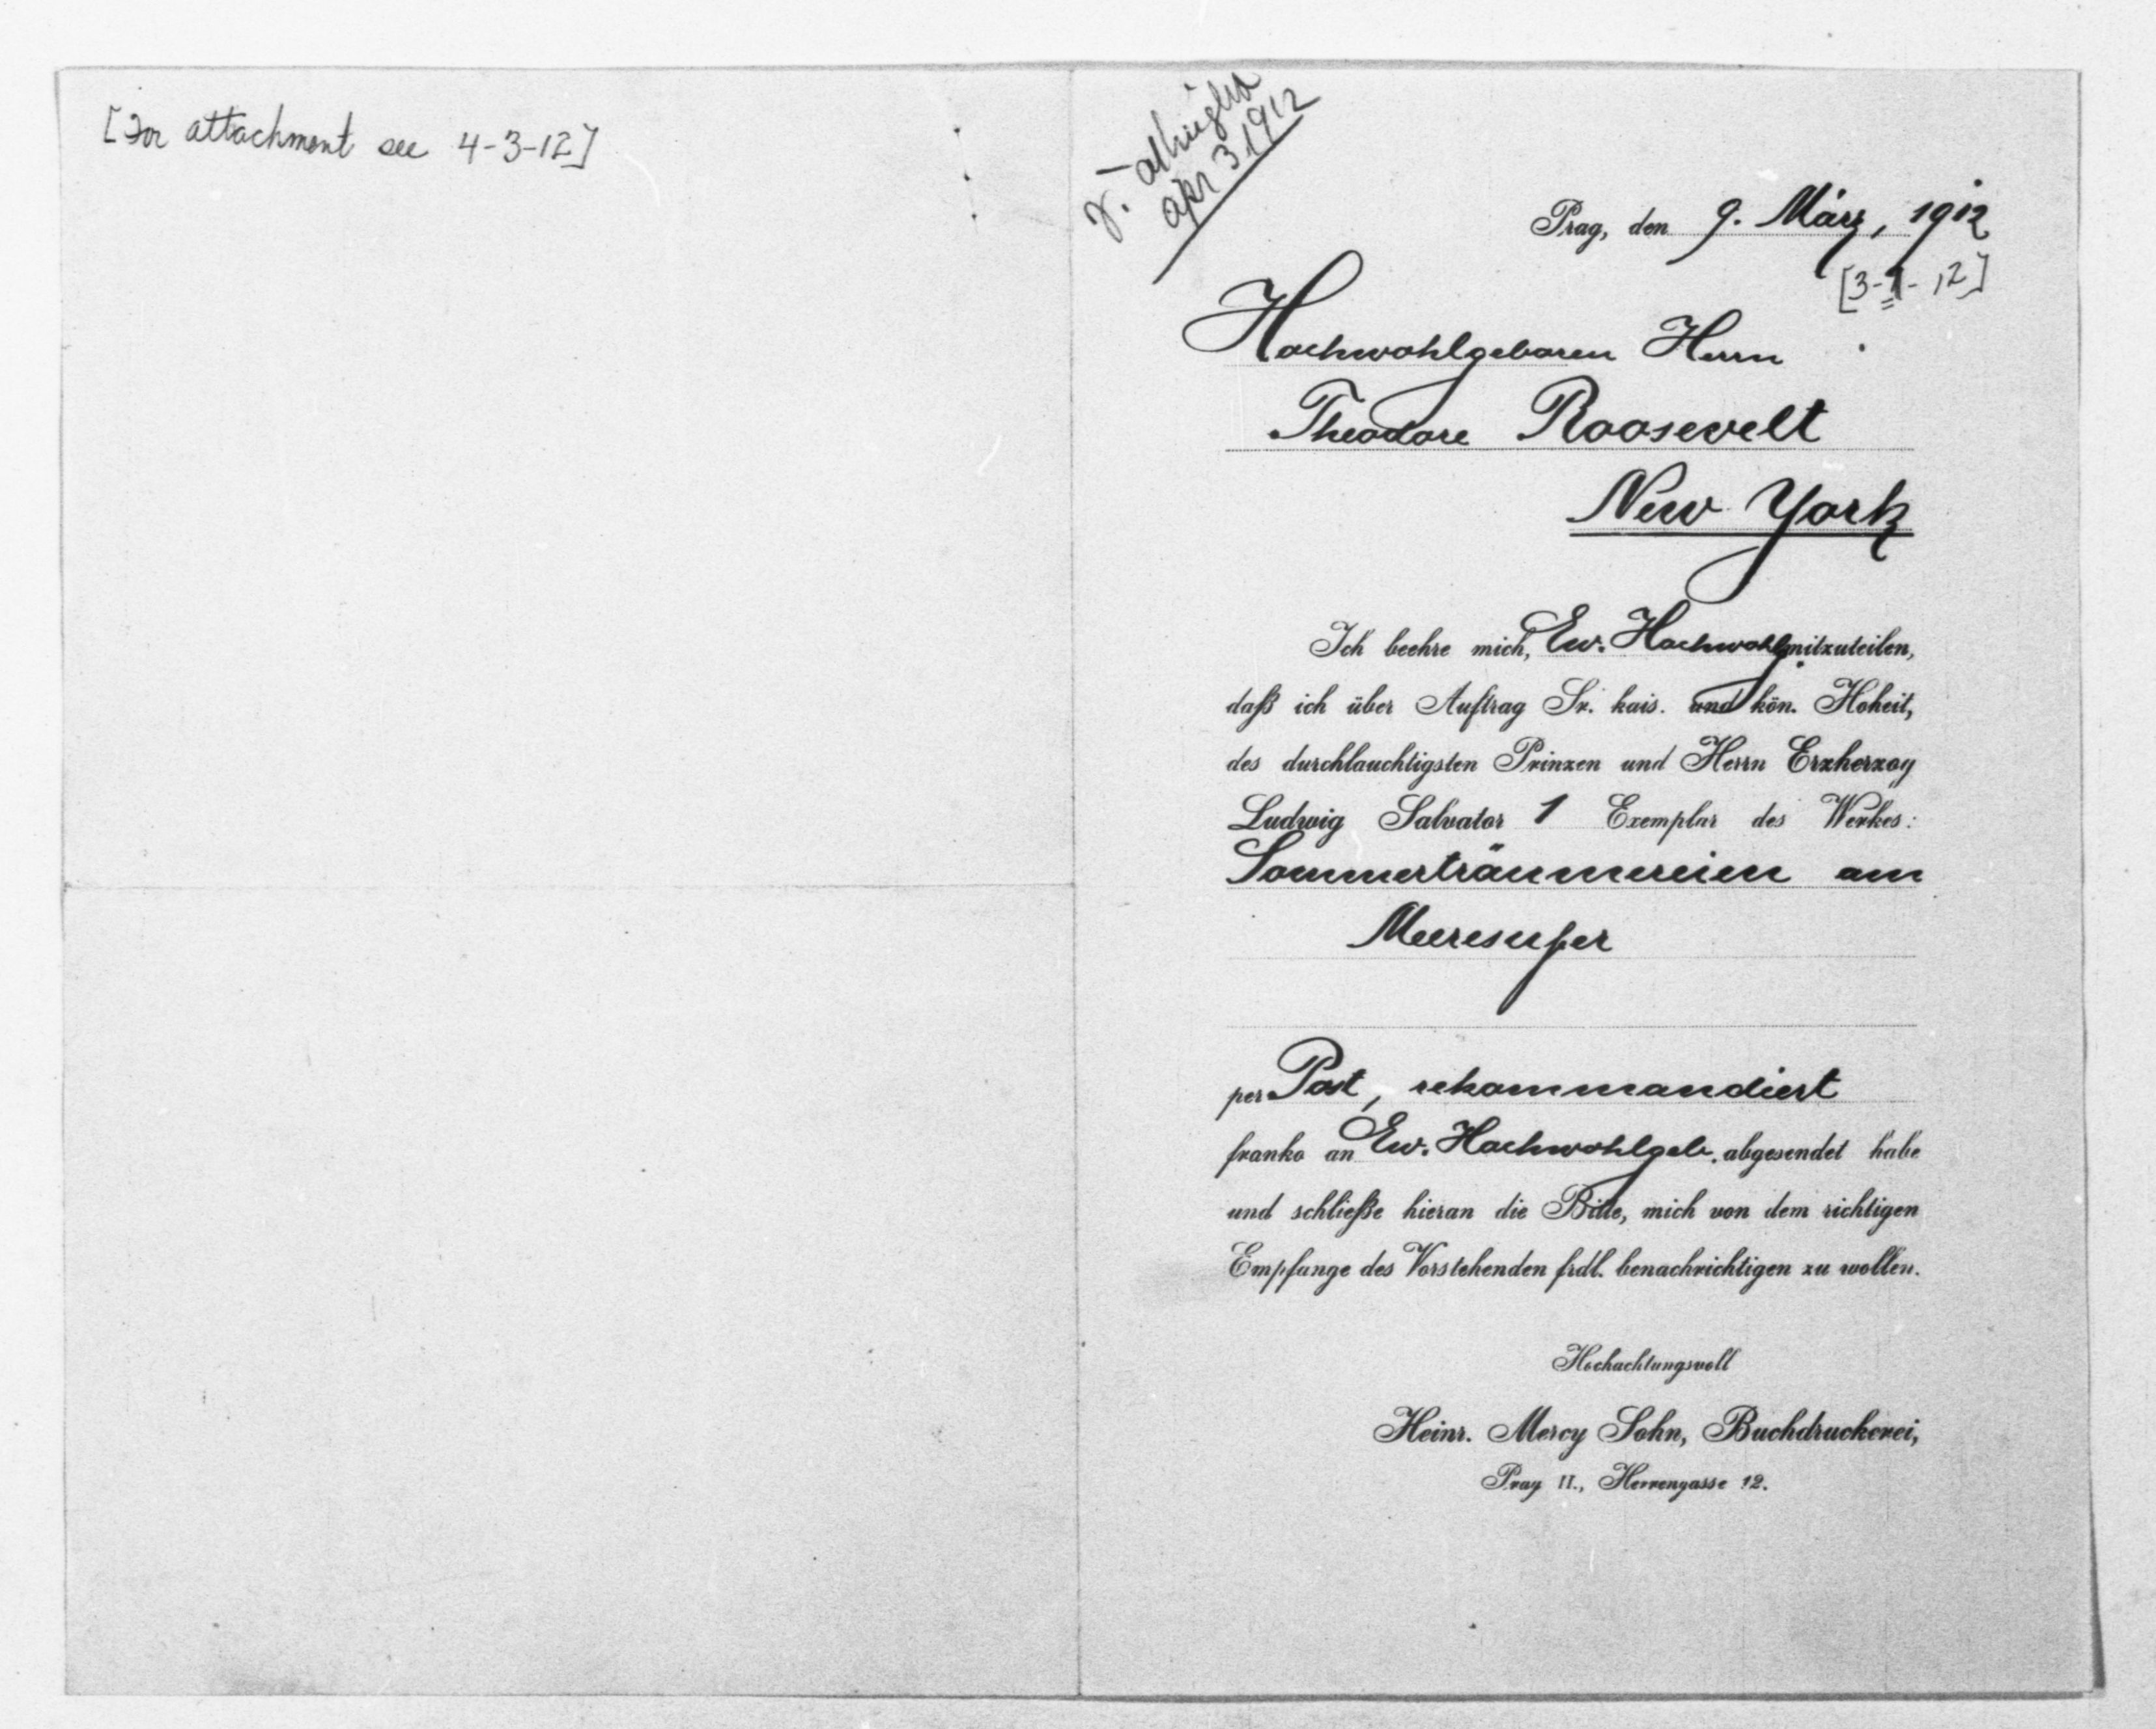 [For attachment see 4-3-12]
Apr 3 1912
Prag, den 9. März, 1912
[3-9-12]
Hochwohlgeboren Herrn
Theodore Roosevelt
New York
Ich beehre mich, Ew. Hochwohlg. mitzuteilen,
daß ich über Auftrag Sr. kais. und kön. Hoheit,
des durchlauchtigsten Prinzen und Herrn Erzherzog
Ludwig Salvator 1 Exemplar des Werkes:
Sommerträumereien am
Meeresufer
per Post, rekommandiert
franko an Ew. Hochwohlgeb. abgesendet habe
und schließe hieran die Bitte, mich von dem richtigen
Empfange des Vorstehenden frdl. benachrichtigen zu wollen.
Hochachtungsvoll
Heinr. Mercy Sohn, Buchdruckerei,
Prag II., Herrengasse 12.